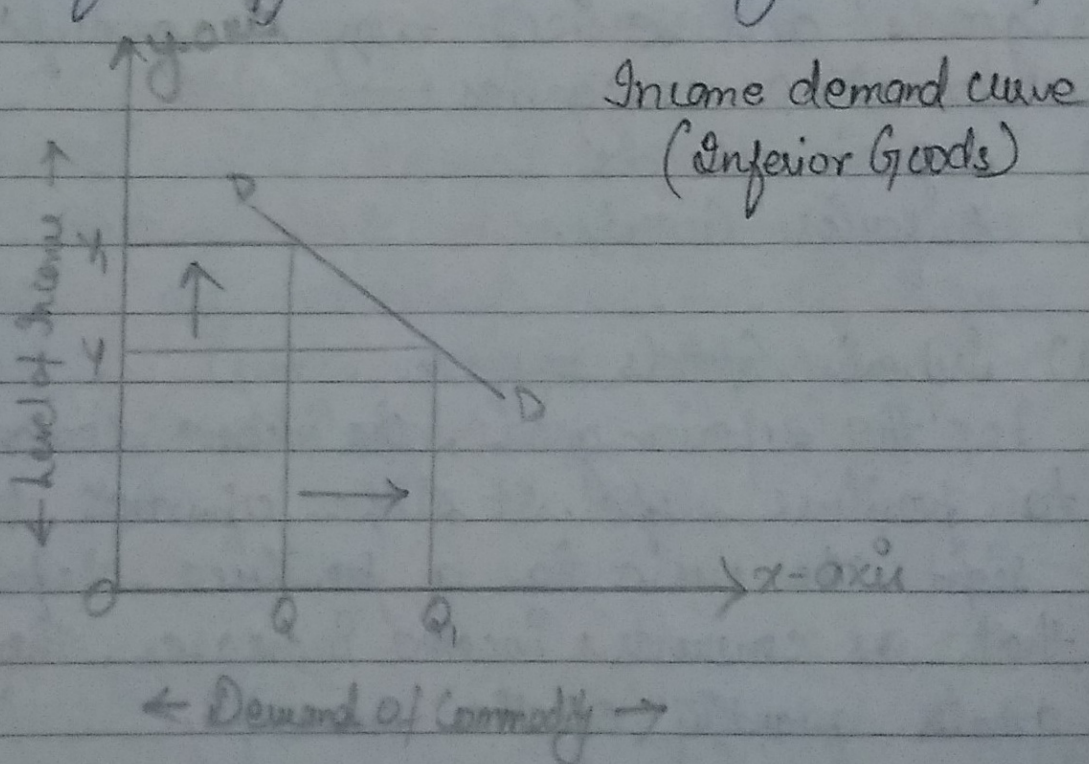 y-axis
Income demand curve
(Inferior Goods)
D
← Level of Income →
Y
D
x-axis
O
Q
Q₁
← Demand of Commodity →